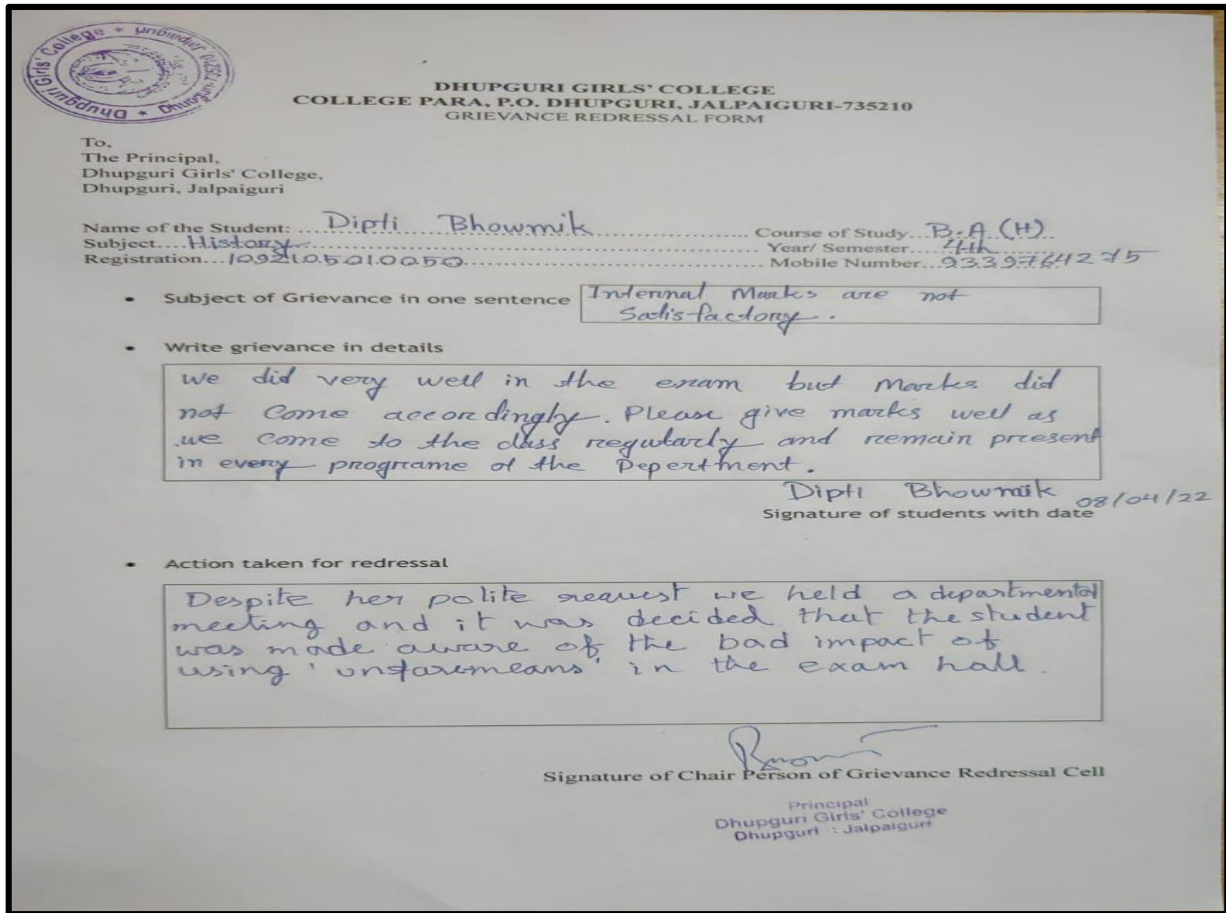 Dhupguri Girls' College
DHUPGURI GIRLS' COLLEGE
COLLEGE PARA, P.O. DHUPGURI, JALPAIGURI-735210
GRIEVANCE REDRESSAL FORM
To,
The Principal,
Dhupguri Girls' College,
Dhupguri, Jalpaiguri
Name of the Student: Dipti Bhowmik Course of Study B.A (H)
Subject History Year/ Semester 4th
Registration 1092105010050 Mobile Number 9339764275
• Subject of Grievance in one sentence Internal Marks are not
Satisfactory.
• Write grievance in details
we did very well in the exam but Marks did
not Come accordingly. Please give marks well as
we come to the class regularly and remain present
in every programe of the Depertment.
Dipti Bhowmik 08/04/22
Signature of students with date
• Action taken for redressal
Despite her polite request we held a departmental
meeting and it was decided that the student
was made aware of the bad impact of
using 'unfairmeans' in the exam hall.
Signature of Chair Person of Grievance Redressal Cell
Principal
Dhupguri Girls' College
Dhupguri : Jalpaiguri